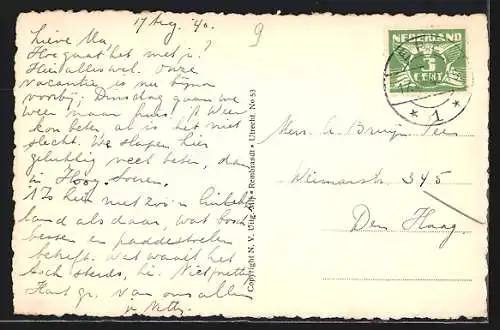 17 Aug. '40.
9
Lieve Ma,
Hoe gaat het met je?
Hier alles wel. Onze
vacantie is nu bijna
voorbij; Dinsdag gaan we
weer naar huis. 't Weer
kon beter, al is het niet
slecht. We slapen hier
gelukkig veel beter, dan
in Hoog Soeren.
't Is hier niet zo'n
land als daar, wat bosch-
bessen en paddestoelen
betreft. Wat waait het
toch steeds, hè. Niet prettig
Hart. gr. van ons allen
Copyright N. V. Uitg. Mij „Rembrandt" Utrecht. No 53
NEDERLAND
3
CENT
* 1 *
A. Bruyn
345
Den Haag